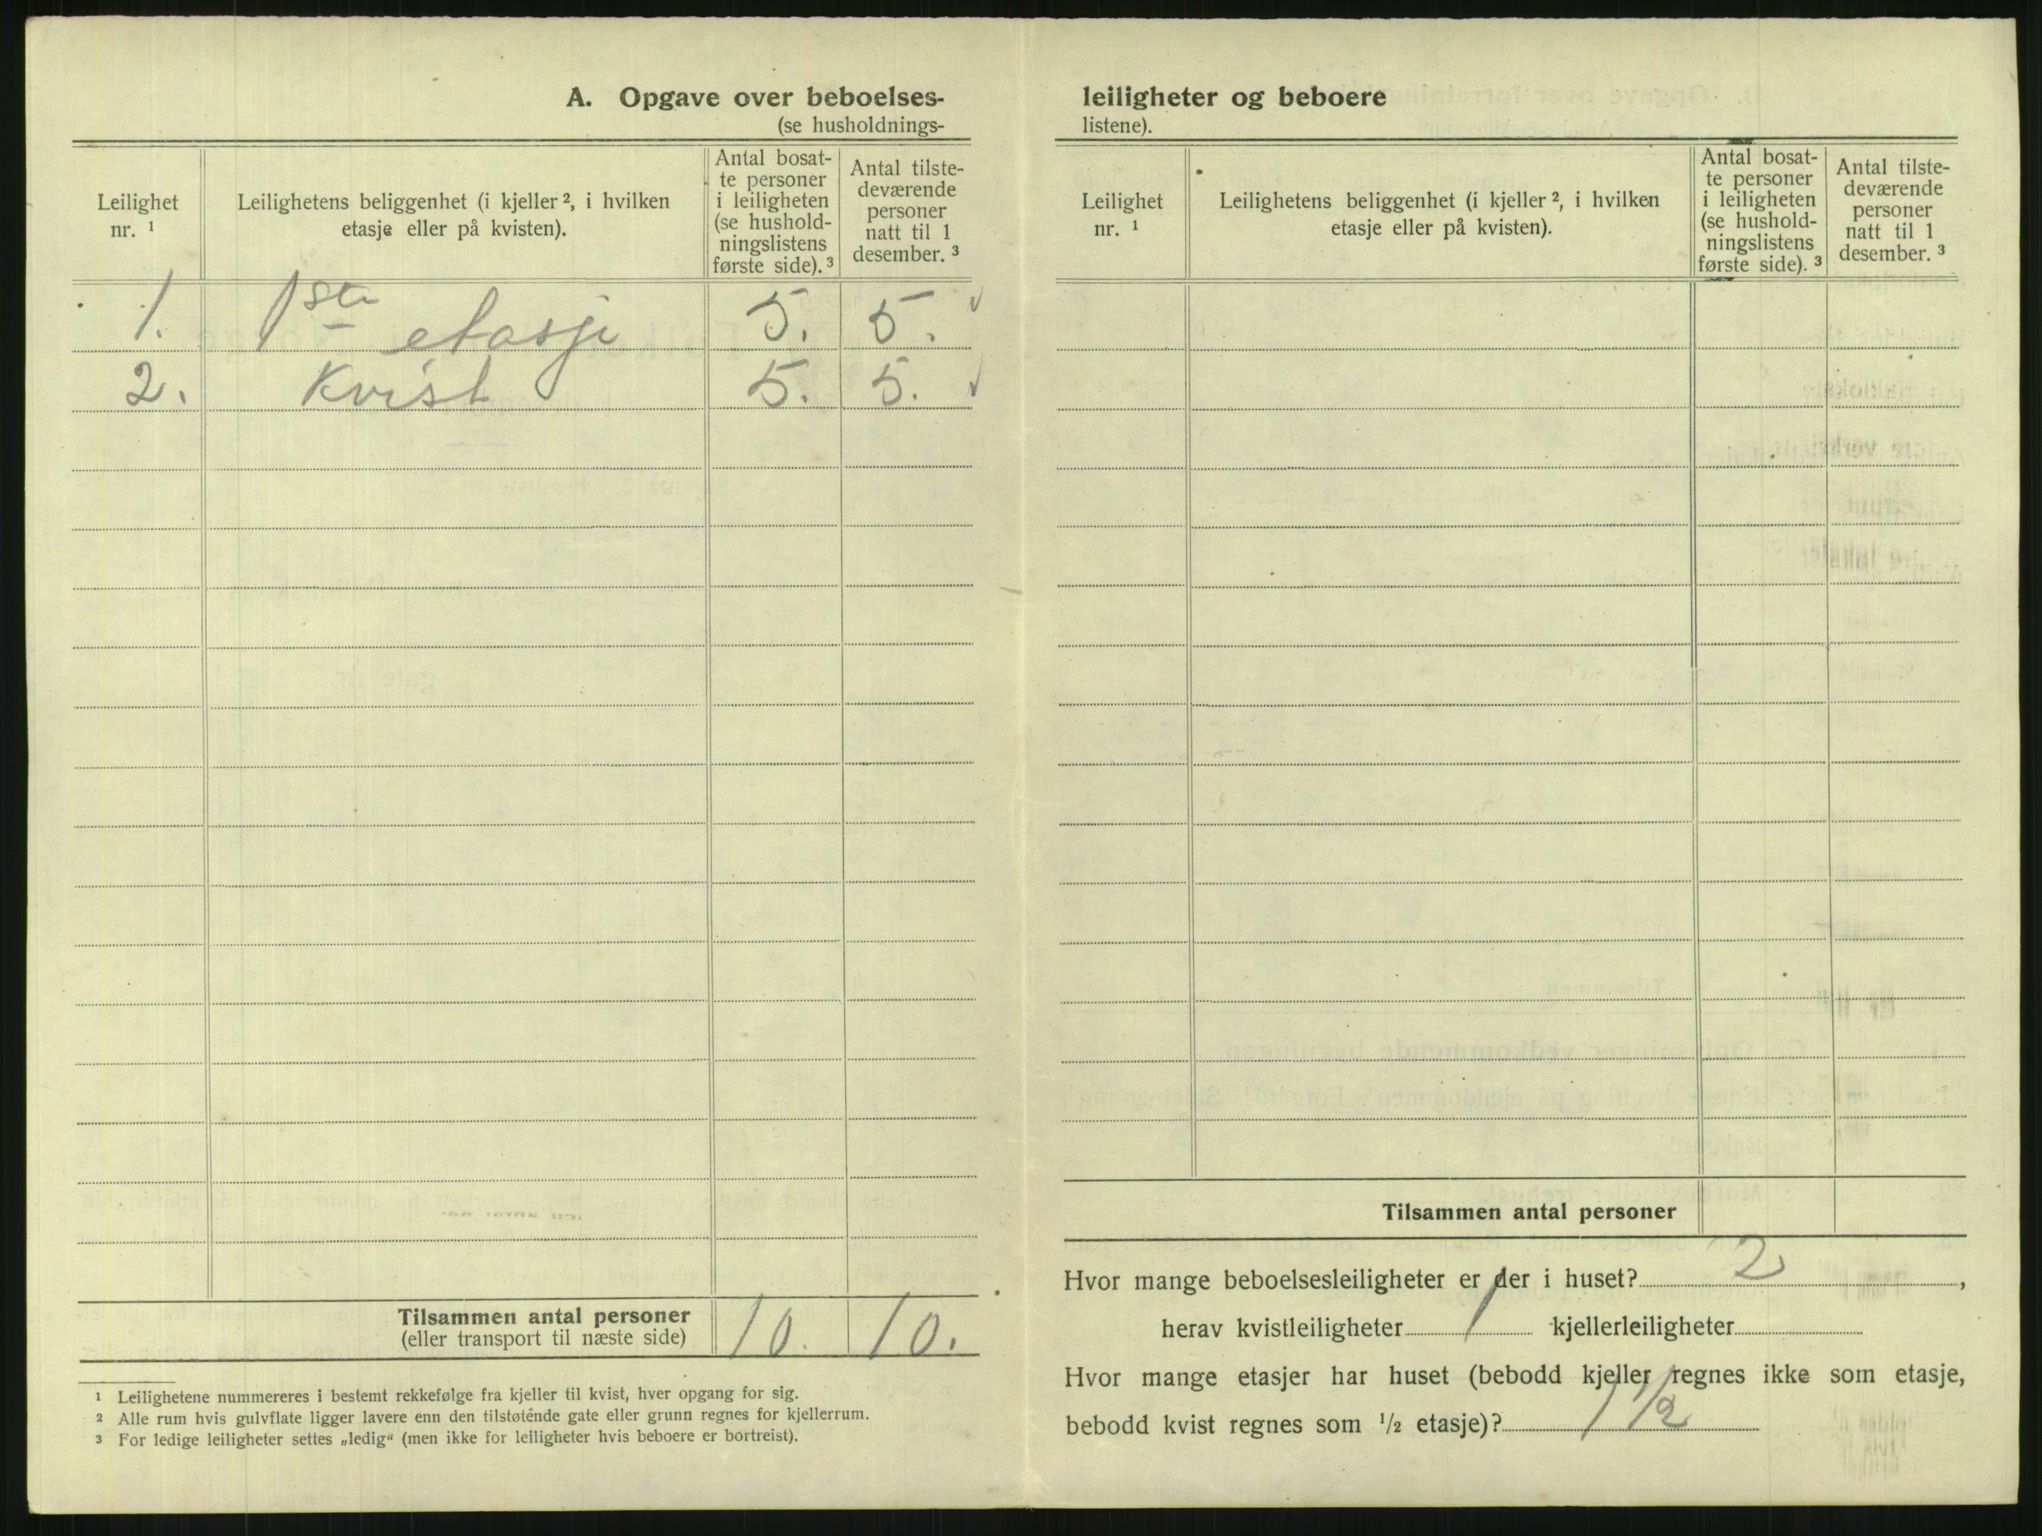 A. Opgave over beboelses-
(se husholdnings-
Leilighet
nr. 1
Leilighetens beliggenhet (i kjeller 2, i hvilken
etasje eller på kvisten).
Antal bosat-
te personer
i leiligheten
(se hushold-
ningslistens
første side). 3
Antal tilste-
deværende
personer
natt til 1
desember. 3
1. 1ste etasje 5. 5. √
2. Kvist 5. 5. √
Tilsammen antal personer 10. 10.
(eller transport til næste side)
1 Leilighetene nummereres i bestemt rekkefølge fra kjeller til kvist, hver opgang for sig.
2 Alle rum hvis gulvflate ligger lavere enn den tilstøtende gate eller grunn regnes for kjellerrum.
3 For ledige leiligheter settes „ledig“ (men ikke for leiligheter hvis beboere er bortreist).
leiligheter og beboere
listene).
Leilighet
nr. 1
Leilighetens beliggenhet (i kjeller 2, i hvilken
etasje eller på kvisten).
Antal bosat-
te personer
i leiligheten
(se hushold-
ningslistens
første side). 3
Antal tilste-
deværende
personer
natt til 1
desember. 3
Tilsammen antal personer
Hvor mange beboelsesleiligheter er der i huset? 2,
herav kvistleiligheter 1 kjellerleiligheter
Hvor mange etasjer har huset (bebodd kjeller regnes ikke som etasje,
bebodd kvist regnes som 1/2 etasje)? 1 1/2